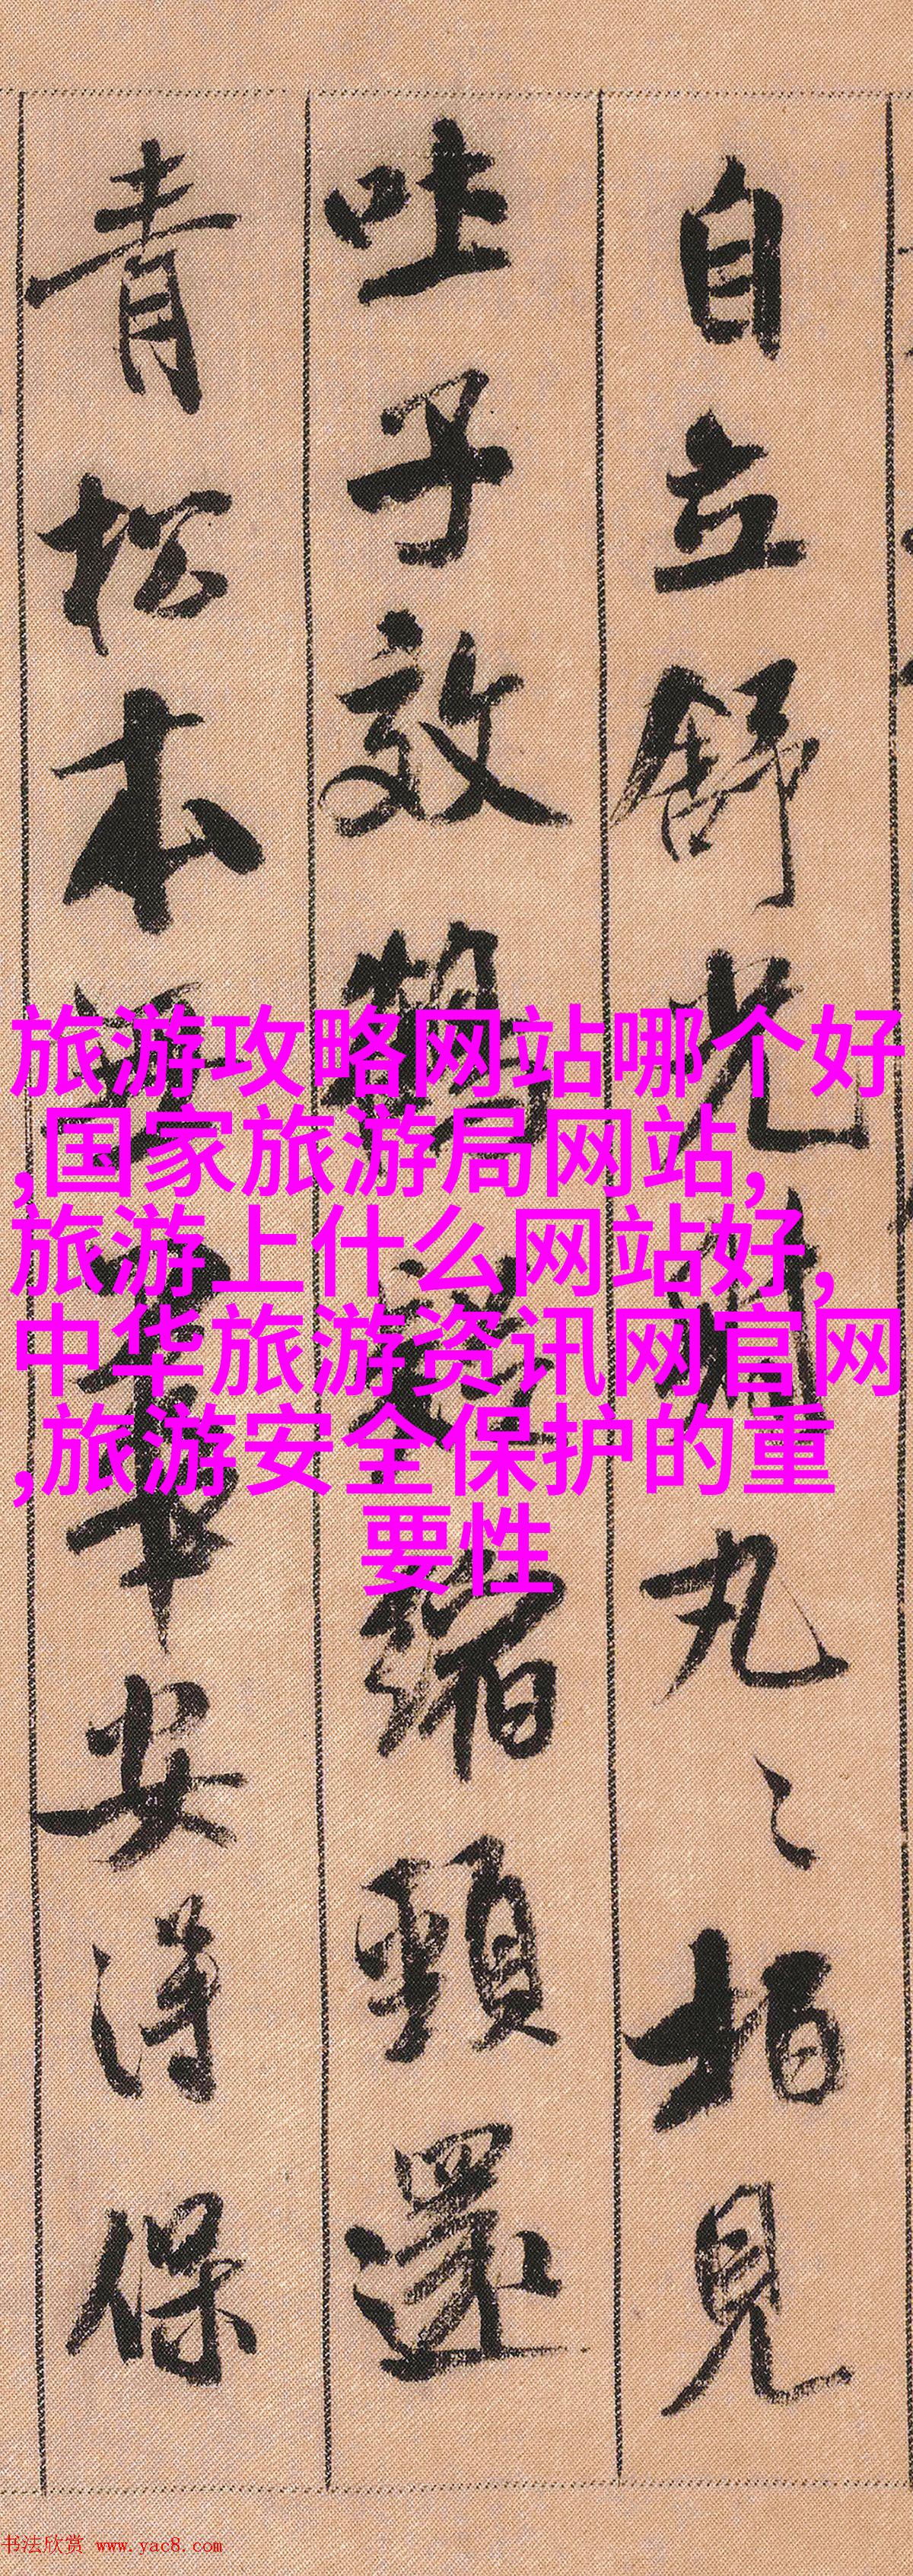 自立舒光射丸〻柏見
吐子效鶴疑縮頸還
青松本無華安得保
旅游攻略网站哪个好
,国家旅游局网站,
旅游上什么网站好,
中华旅游资讯网官网
,旅游安全保护的重
要性
书法欣赏 www.yac8.com